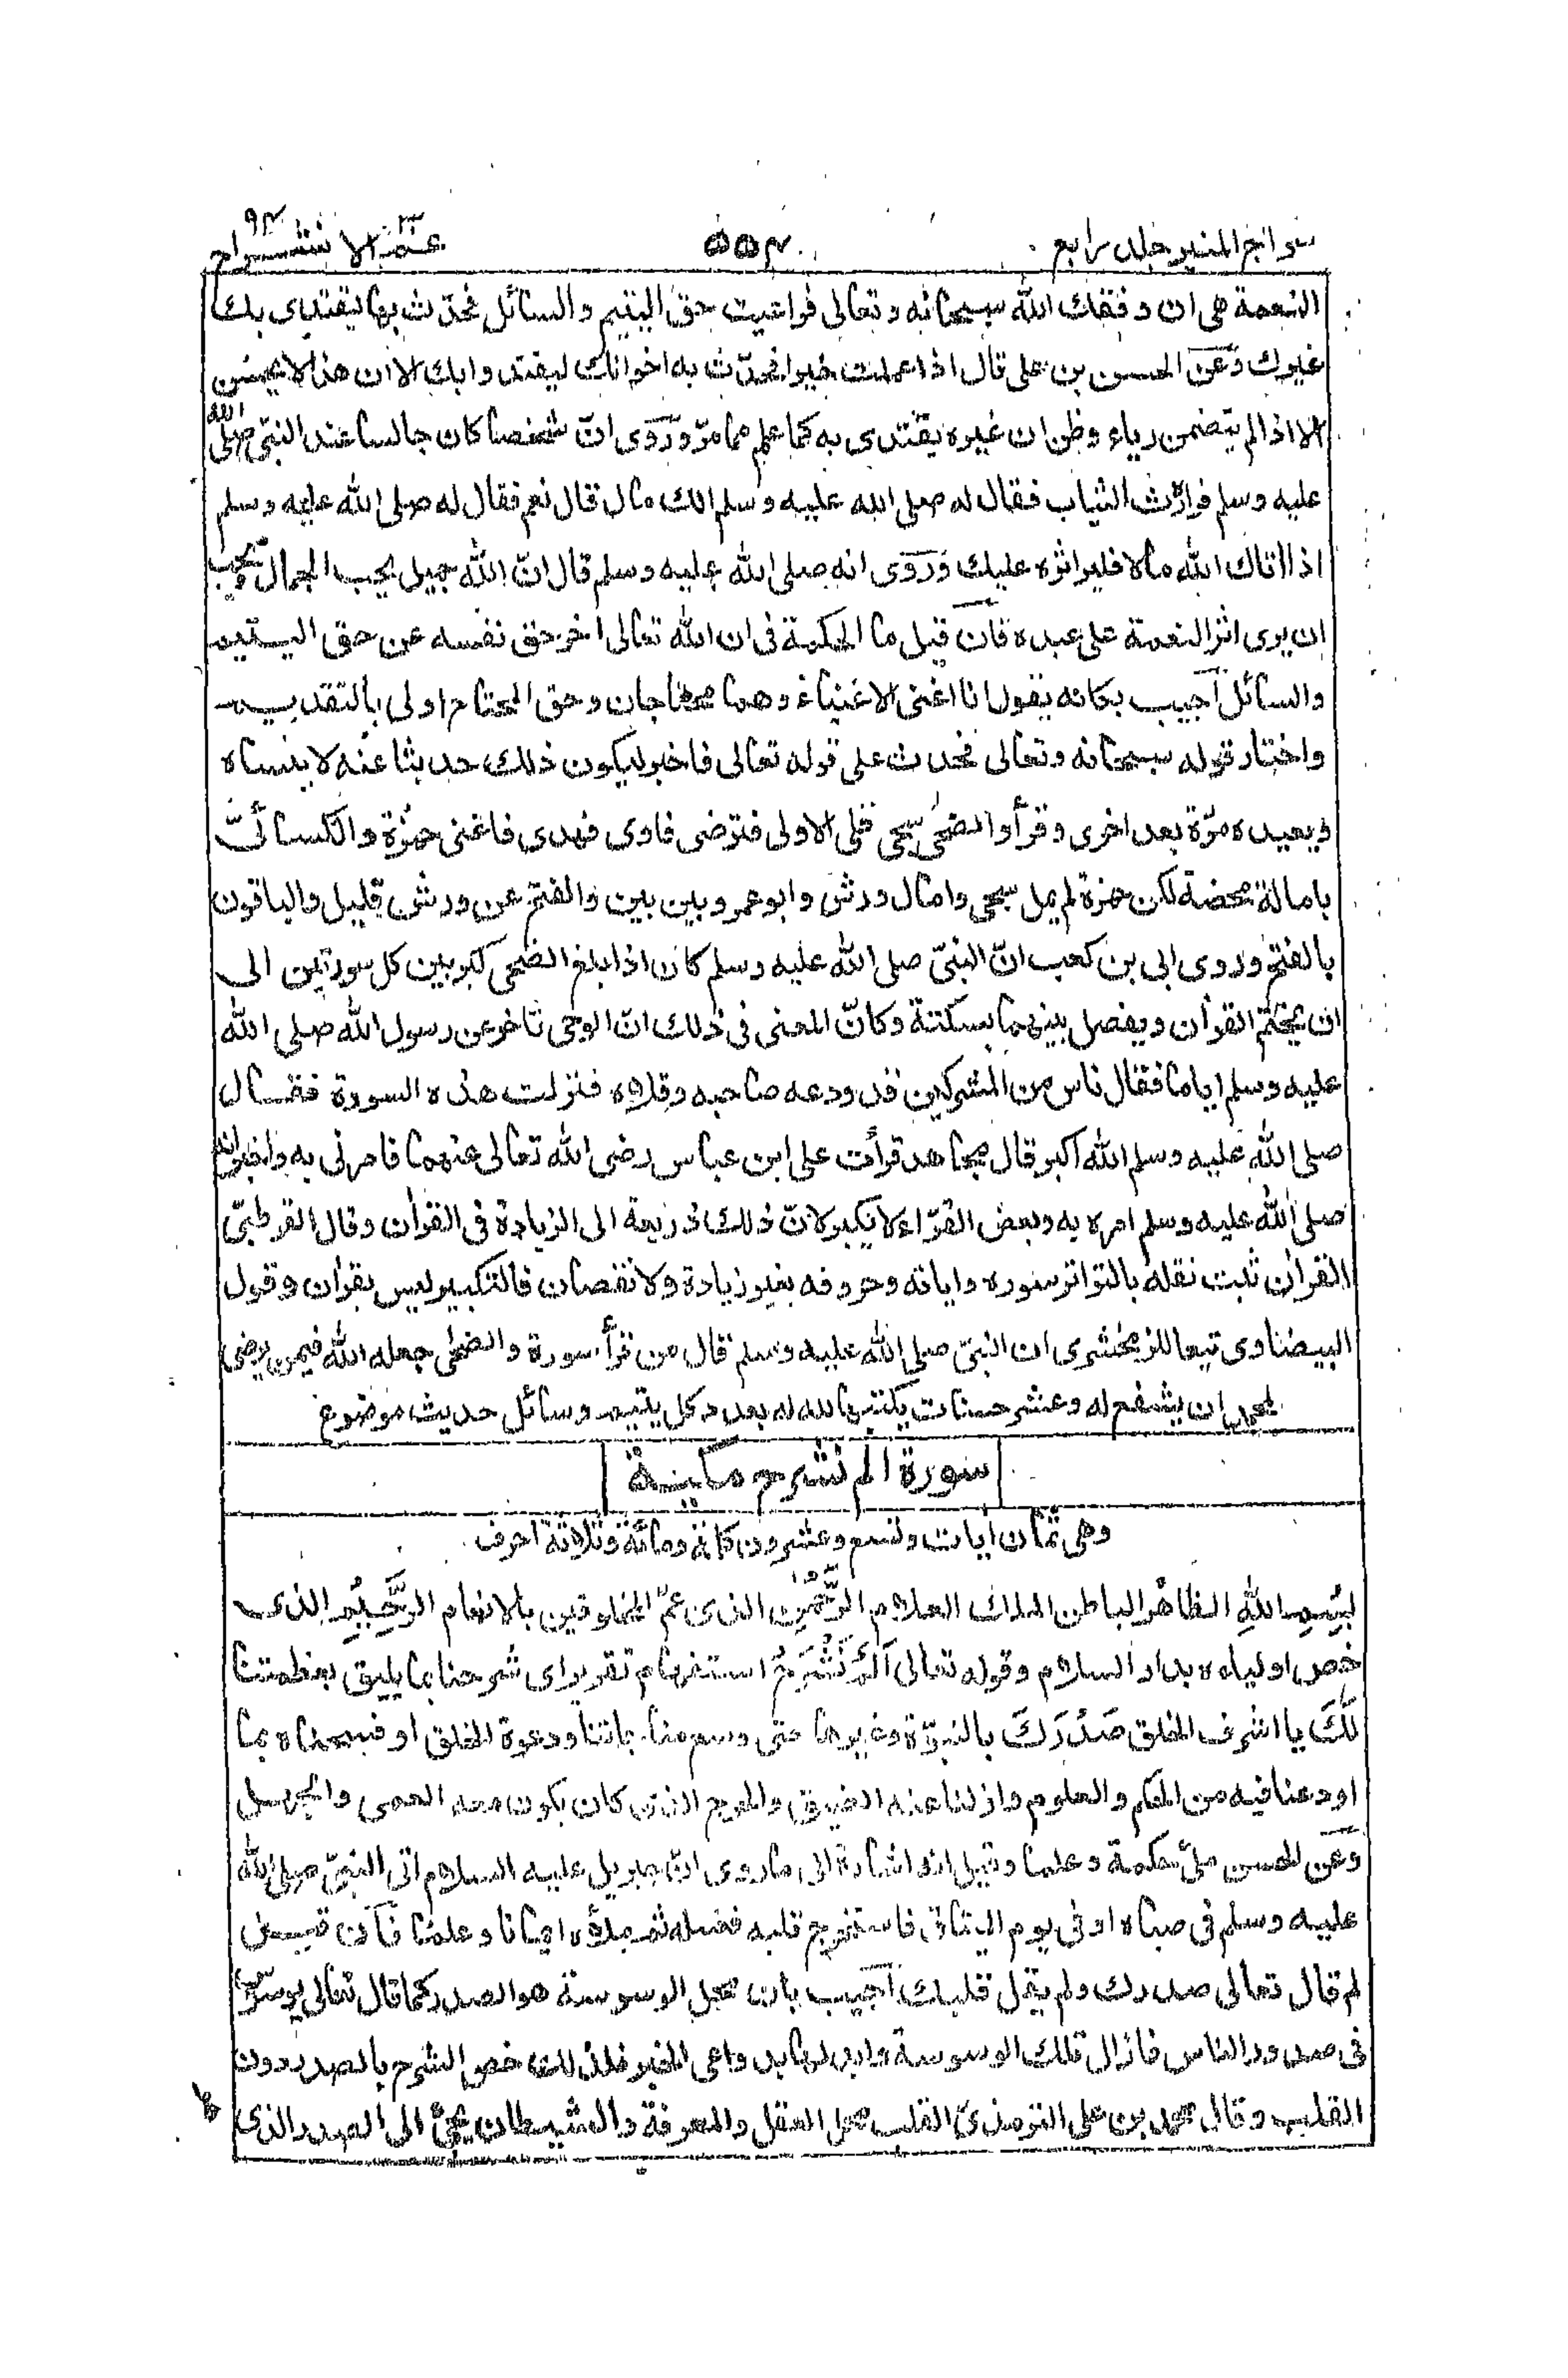 سراج المنير جلد رابع ٥٥٤ عم الانشراح ٩٤
النعمة هى ان وفقك الله سبحانه وتعالى فراعيت حق اليتيم والسائل فحدّث بها ليقتدى بك
غيرك وعن الحسن بن على قال اذا عملت خيرا فحدّث به اخوانك ليقتدوا بك الا ان هذا لا يحسن
الا اذا لم يتضمن رياء وظن ان غيره يقتدى به كما علم مما مرّ وروى انّ شخصا كان جالسا عند النبىّ صلى الله
عليه وسلم فراٰه رث الثياب فقال له صلى الله عليه وسلم الك مال قال نعم فقال له صلى الله عليه وسلم
اذا اٰتاك الله مالا فلير اثره عليك وروى انه صلى الله عليه وسلم قال انّ الله جميل يحب الجمال ويحب
ان يرى اثر النعمة على عبده فان قيل ما الحكمة فى ان الله تعالى اخر حق نفسه عن حق اليتيم
والسائل اجيب بكانه يقول انا اغنى الاغنياء وهما محتاجان وحق المحتاج اولى بالتقديم
واختار قوله سبحانه وتعالى فحدث على قوله تعالى فاخبر ليكون ذلك حديثا عنه لا ينساه
ويعيده مرّة بعد اخرى وقرأ والضحى سجى قلى الاولى فترضى فاوى فهدى فاغنى حمزة والكسائىّ
بامالة محضة لكن حمزة لم يمل سجى وامال ورش وابو عمرو بين بين والفتح عن ورش قليل والباقون
بالفتح وروى ابى بن كعب انّ النبىّ صلى الله عليه وسلم كان اذا بلغ الضحى كبر بين كل سورتين الى
ان يختم القراٰن ويفصل بينهما بسكتة وكانّ المعنى فى ذلك انّ الوحى تاخر عن رسول الله صلى الله
عليه وسلم اياما فقال ناس من المشركين قد ودعه صاحبه وقلاه فنزلت هذه السورة فقال
صلى الله عليه وسلم الله اكبر قال مجاهد قرأت على ابن عباس رضى الله تعالى عنهما فامرنى به واخبر انه
صلى الله عليه وسلم امره به وبعض القرّاء لا يكبر لانّ ذلك ذريعة الى الزيادة فى القراٰن وقال القرطبىّ
القراٰن ثبت نقله بالتواتر سوره واياته وحروفه بغير زيادة ولا نقصان فالتكبير ليس بقراٰن وقول
البيضاوى تبعا للزمخشرى ان النبىّ صلى الله عليه وسلم قال من قرأ سورة والضحى جعله الله فيمن يرضى
لمحمد ان يشفع له وعشر حسنات يكتبها الله له بعدد كل يتيم وسائل حديث موضوع
سورة الم نشرح مكية
وهى ثمان ايات وتسع وعشرون كلمة ومائة وثلاثة احرف
بِسْمِ اللهِ الظاهر الباطن الملك العلام الرَّحْمٰنِ الذى عمّ المخلوقين بالانعام الرَّحِيْمِ الذى
خص اولياءه بدار السلام وقوله تعالى اَلَمْ نَشْرَحْ استفهام تقرير اى شرحنا بما يليق بعظمتنا
لَكَ يا اشرف الخلق صَدْرَكَ بالنبوّة وغيرها حتى وسع مناجاتنا ودعوة الخلق او فسحناه بما
اودعنا فيه من الحكم والعلوم وازلنا عنه الضيق والحرج الذى كان يكون معه العمى والجهل
وعن الحسن ملئ حكمة وعلما وقيل انه اشارة الى ما روى انّ جبريل عليه السلام اتى النبىّ صلى الله
عليه وسلم فى صباه او فى يوم الميثاق فاستخرج قلبه فغسله ثم ملأه ايمانا وعلما فان قيل
لم قال تعالى صدرك ولم يقل قلبك اجيب بان محل الوسوسة هو الصدر كما قال تعالى يوسوس
فى صدور الناس فازال تلك الوسوسة وابدلها بدواعى الخير فلذلك خص الشرح بالصدر دون
القلب وقال محمد بن على الترمذىّ القلب محل العقل والمعرفة والشيطان يجئ الى الصدر الذى